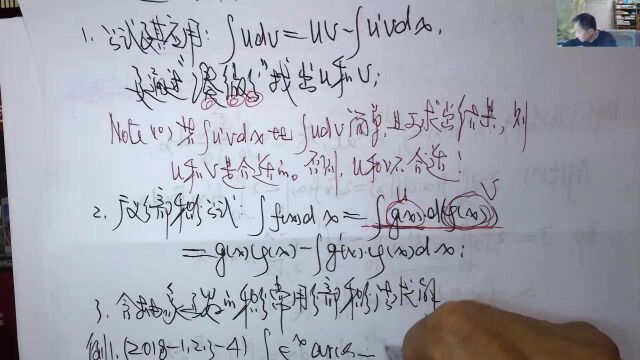 1. 公式及其应用: ∫udv = uv − ∫u'vdx,
关键是"凑微分"找出u和v;
Note(1): 若∫u'vdx比∫udv简单,且易求出结果,则
u和v是合适的。否则,u和v不合适!
u v
2. 广义分部积分公式: ∫f(x)dx = ∫g(x)d(φ(x))
= g(x)φ(x) − ∫g'(x)·φ(x)dx;
3. 含 的积分常用分部积分法求解
例1.(2018-1,2,3-4) ∫e^x arc